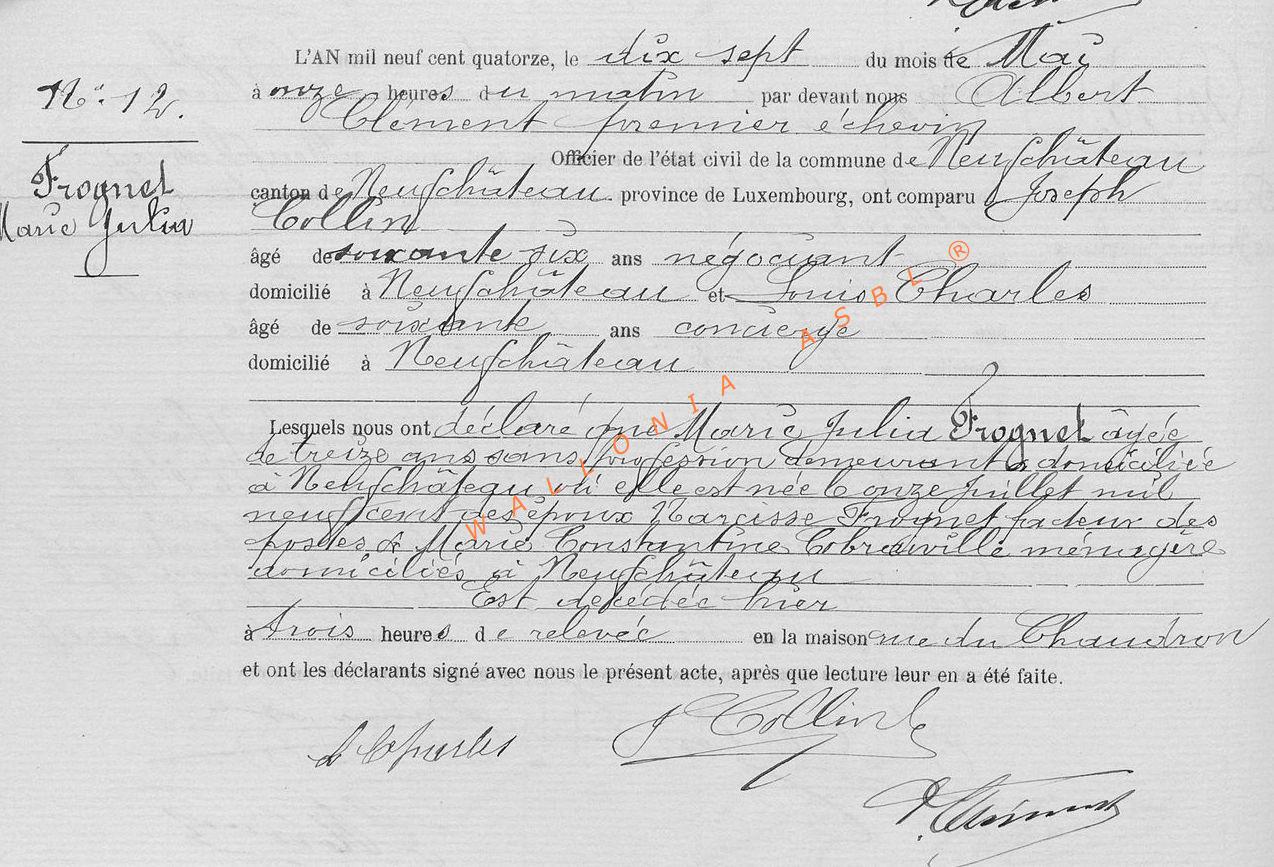 N° 12.
Frognet
Marie Julia
L'AN mil neuf cent quatorze, le dix sept du mois de Mai
à onze heures du matin par devant nous Albert
Clement premier échevin
Officier de l'état civil de la commune de Neufchâteau
canton de Neufchâteau province de Luxembourg, ont comparu Joseph
Collin
âgé de soixante six ans négociant
domicilié à Neufchâteau et Louis Charles
âgé de soixante ans concierge
domicilié à Neufchâteau
Lesquels nous ont déclaré que Marie Julia Frognet âgée
de treize ans sans profession demeurant & domiciliée
à Neufchâteau où elle est née le onze juillet mil
neuf cent des époux Narcisse Frognet facteur des
postes & Marie Constantine Cobraiville ménagère
domiciliés à Neufchâteau
Est décédée hier
à trois heures de relevée en la maison rue du Chaudron
et ont les déclarants signé avec nous le présent acte, après que lecture leur en a été faite.
L Charles
J Collin
Clément
WALLONIA ASBL ®